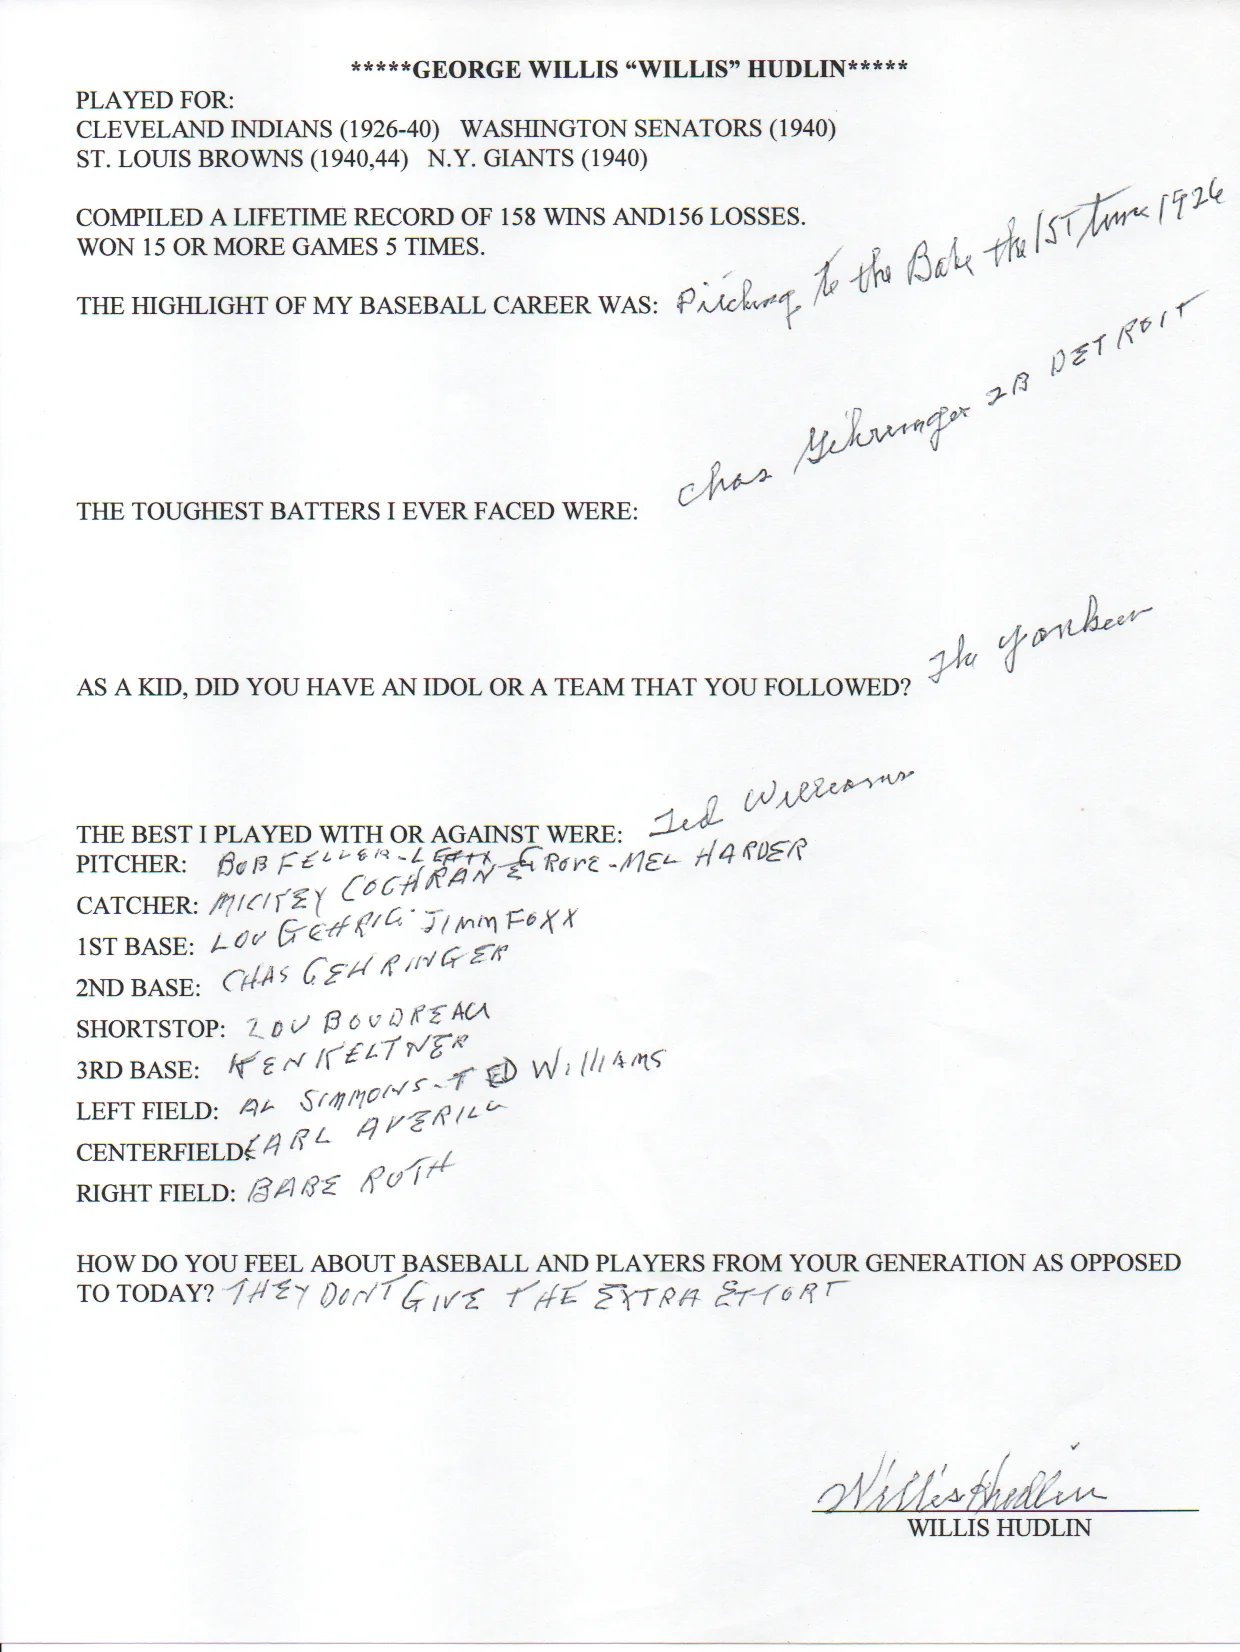 *****GEORGE WILLIS “WILLIS” HUDLIN*****
PLAYED FOR:
CLEVELAND INDIANS (1926-40) WASHINGTON SENATORS (1940)
ST. LOUIS BROWNS (1940,44) N.Y. GIANTS (1940)
COMPILED A LIFETIME RECORD OF 158 WINS AND156 LOSSES.
WON 15 OR MORE GAMES 5 TIMES.
THE HIGHLIGHT OF MY BASEBALL CAREER WAS: Pitching to the Babe the 1ST time 1926
THE TOUGHEST BATTERS I EVER FACED WERE: Chas Gehringer 2B DETROIT
AS A KID, DID YOU HAVE AN IDOL OR A TEAM THAT YOU FOLLOWED? The Yankees
THE BEST I PLAYED WITH OR AGAINST WERE: Ted Williams
PITCHER: BOB FELLER - LEFTY GROVE - MEL HARDER
CATCHER: MICKEY COCHRANE
1ST BASE: LOU GEHRIG - JIMM FOXX
2ND BASE: CHAS GEHRINGER
SHORTSTOP: LOU BOUDREAU
3RD BASE: KEN KELTNER
LEFT FIELD: AL SIMMONS - TED WILLIAMS
CENTERFIELD: EARL AVERILL
RIGHT FIELD: BABE RUTH
HOW DO YOU FEEL ABOUT BASEBALL AND PLAYERS FROM YOUR GENERATION AS OPPOSED
TO TODAY? THEY DON'T GIVE THE EXTRA EFFORT
Willis Hudlin
WILLIS HUDLIN